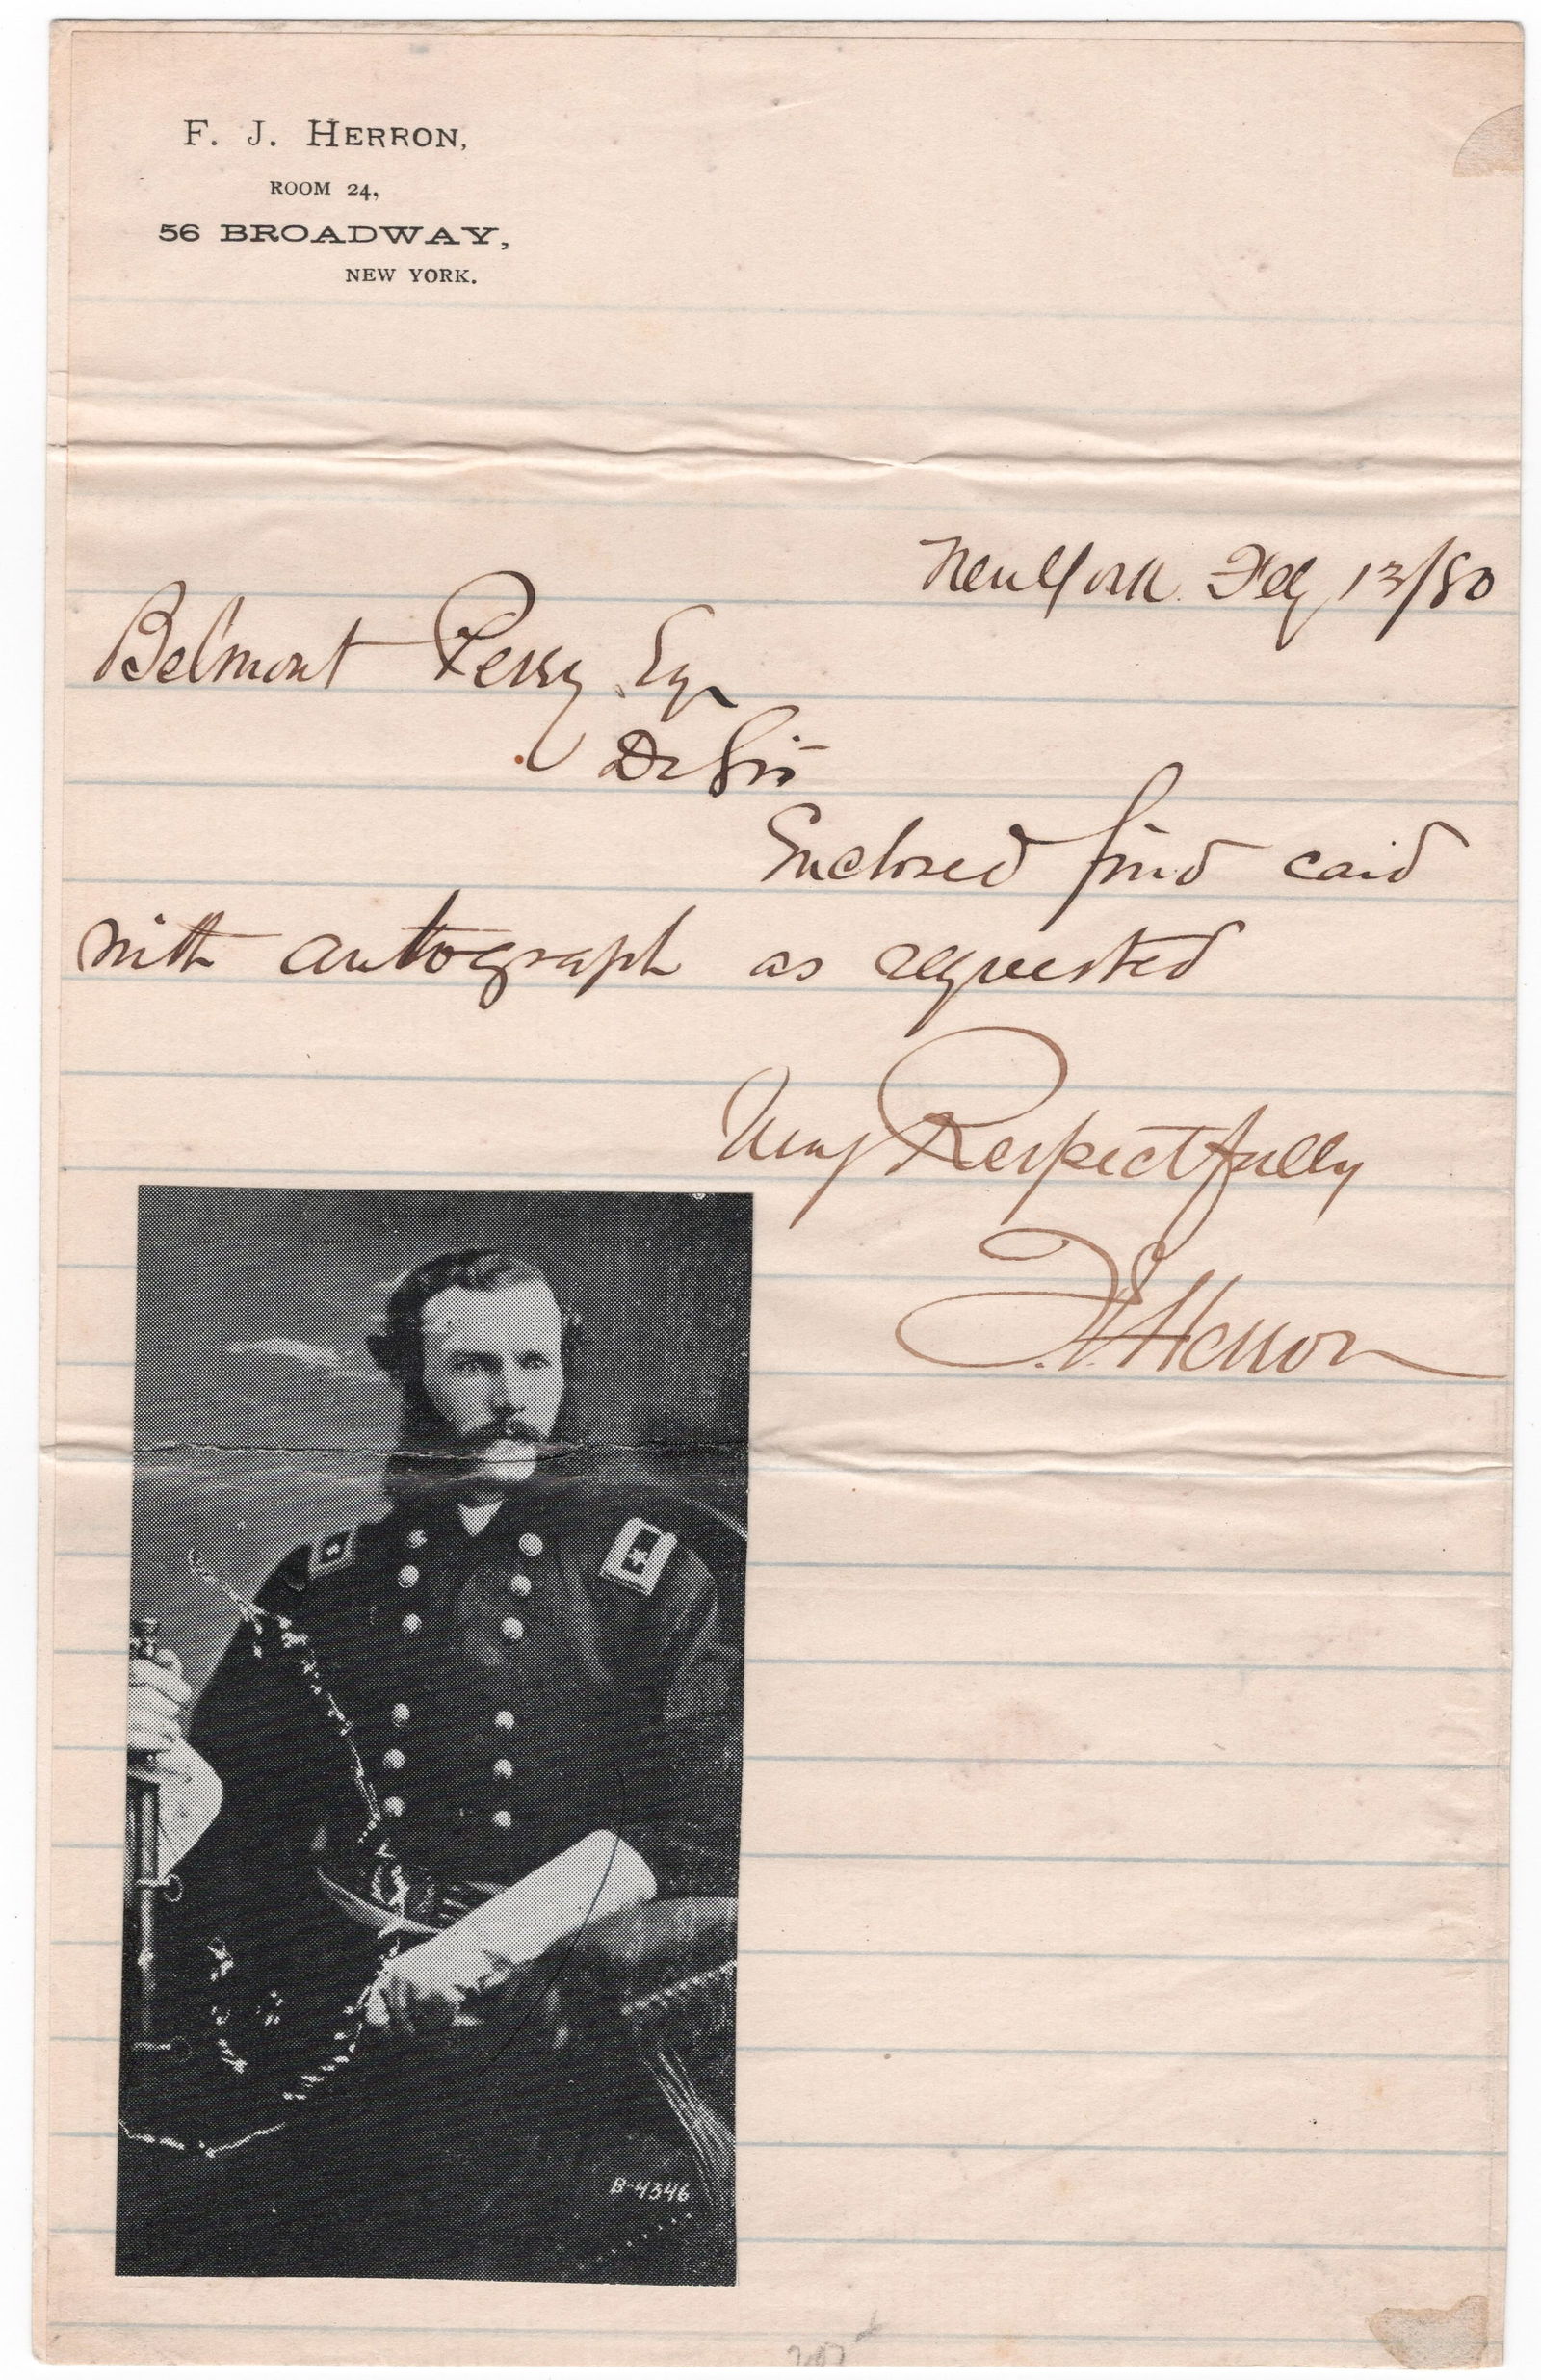 F. J. HERRON,
ROOM 24,
56 BROADWAY,
NEW YORK.
New York Feby 13/80
Belmont Perry Esq
Dr Sir
Enclosed find card
with autograph as requested
Very Respectfully
F. J. Herron
B-4346